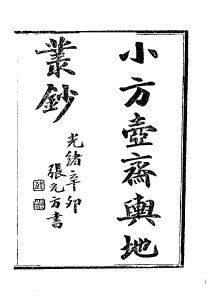 小方壺齋輿地
叢鈔
光緒辛卯
張元方書